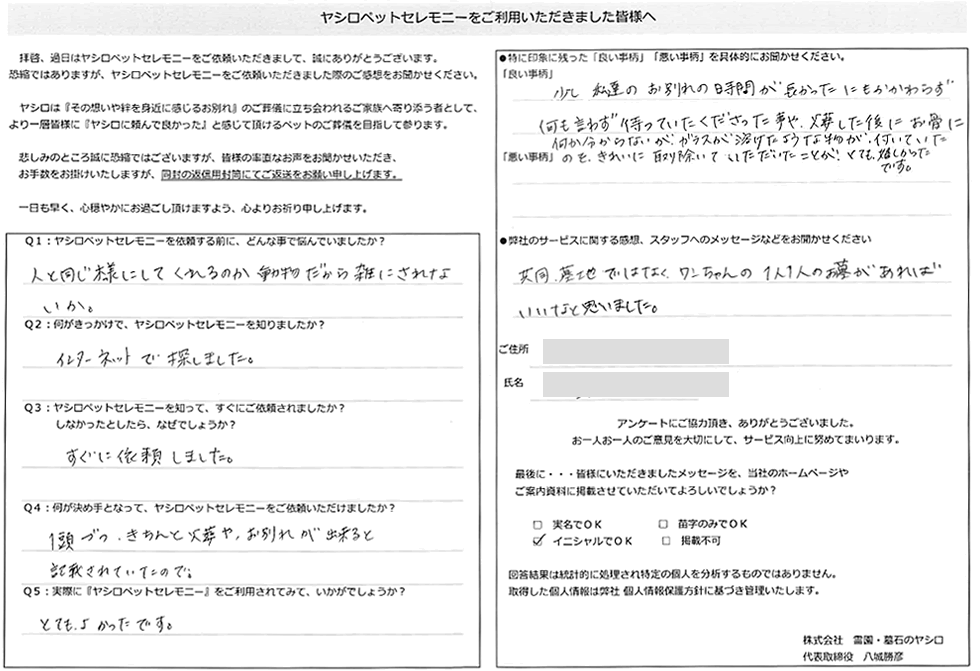 ヤシロペットセレモニーをご利用いただきました皆様へ
拝啓、過日はヤシロペットセレモニーをご依頼いただきまして、誠にありがとうございます。
恐縮ではありますが、ヤシロペットセレモニーをご依頼いただきました際のご感想をお聞かせください。
ヤシロは『その想いや絆を身近に感じるお別れ』のご葬儀に立ち会われるご家族へ寄り添う者として、
より一層皆様に『ヤシロに頼んで良かった』と感じて頂けるペットのご葬儀を目指して参ります。
悲しみのところ誠に恐縮ではございますが、皆様の率直なお声をお聞かせいただき、
お手数をお掛けいたしますが、同封の返信用封筒にてご返送をお願い申し上げます。
一日も早く、心穏やかにお過ごし頂けますよう、心よりお祈り申し上げます。
Q1:ヤシロペットセレモニーを依頼する前に、どんな事で悩んでいましたか?
人と同じ様にしてくれるのか動物だから雑にされな
いか。
Q2:何がきっかけで、ヤシロペットセレモニーを知りましたか?
インターネットで探しました。
Q3:ヤシロペットセレモニーを知って、すぐにご依頼されましたか?
しなかったとしたら、なぜでしょうか?
すぐに依頼しました。
Q4:何が決め手となって、ヤシロペットセレモニーをご依頼いただけましたか?
1頭づつ、きちんと火葬や、お別れが出来ると
記載されていたので。
Q5:実際に『ヤシロペットセレモニー』をご利用されてみて、いかがでしょうか?
とてもよかったです。
●特に印象に残った「良い事柄」「悪い事柄」を具体的にお聞かせください。
「良い事柄」
少し私達のお別れの時間が長かったにもかかわらず
何も言わず待っていたくださった事や、火葬した後にお骨に
何か分からないが、ガラスが溶けたような物が、付いていた
「悪い事柄」
のを、きれいに取り除いていただいたことが、とても嬉しかった
です。
●弊社のサービスに関する感想、スタッフへのメッセージなどをお聞かせください
共同墓地ではなく、ワンちゃんの1人1人のお墓があれば
いいなと思いました。
ご住所
氏名
アンケートにご協力頂き、ありがとうございました。
お一人お一人のご意見を大切にして、サービス向上に努めてまいります。
最後に・・・皆様にいただきましたメッセージを、当社のホームページや
ご案内資料に掲載させていただいてよろしいでしょうか?
□ 実名でOK □ 苗字のみでOK
☑ イニシャルでOK □ 掲載不可
回答結果は統計的に処理され特定の個人を分析するものではありません。
取得した個人情報は弊社 個人情報保護方針に基づき管理いたします。
株式会社 霊園・墓石のヤシロ
代表取締役 八城勝彦